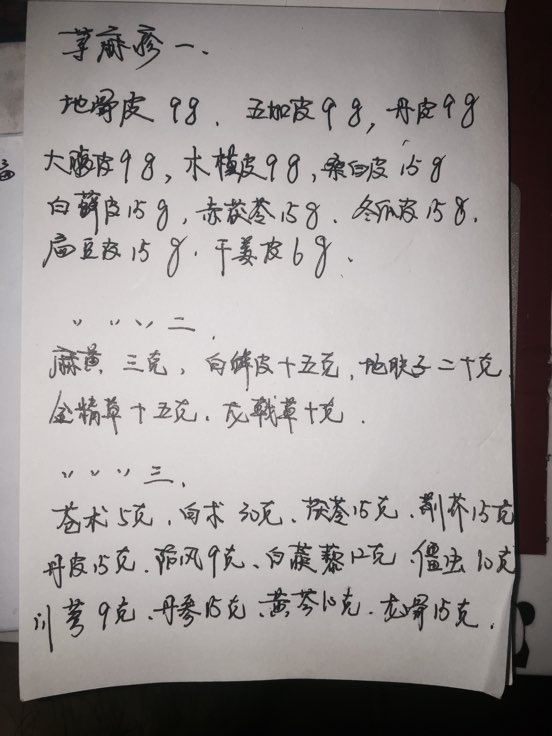 荨麻疹一.
地骨皮 9g. 五加皮 9g, 丹皮 9g
大腹皮 9g, 木槿皮 9g, 桑白皮 15g
白藓皮 15g, 赤茯苓 15g. 冬瓜皮 15g.
扁豆皮 15g. 干姜皮 6g.
〃 〃 〃 二.
麻黄 三克, 白鲜皮十五克, 地肤子二十克.
金精草十五克. 龙戟草十克.
〃 〃 〃 三.
苍术 5克, 白术 30克. 茯苓 15克. 荆芥 15克
丹皮 15克. 防风 9克. 白蒺藜 12克. 僵虫 10克
川芎 9克. 丹参 15克. 黄芩 10克. 龙骨 15克.